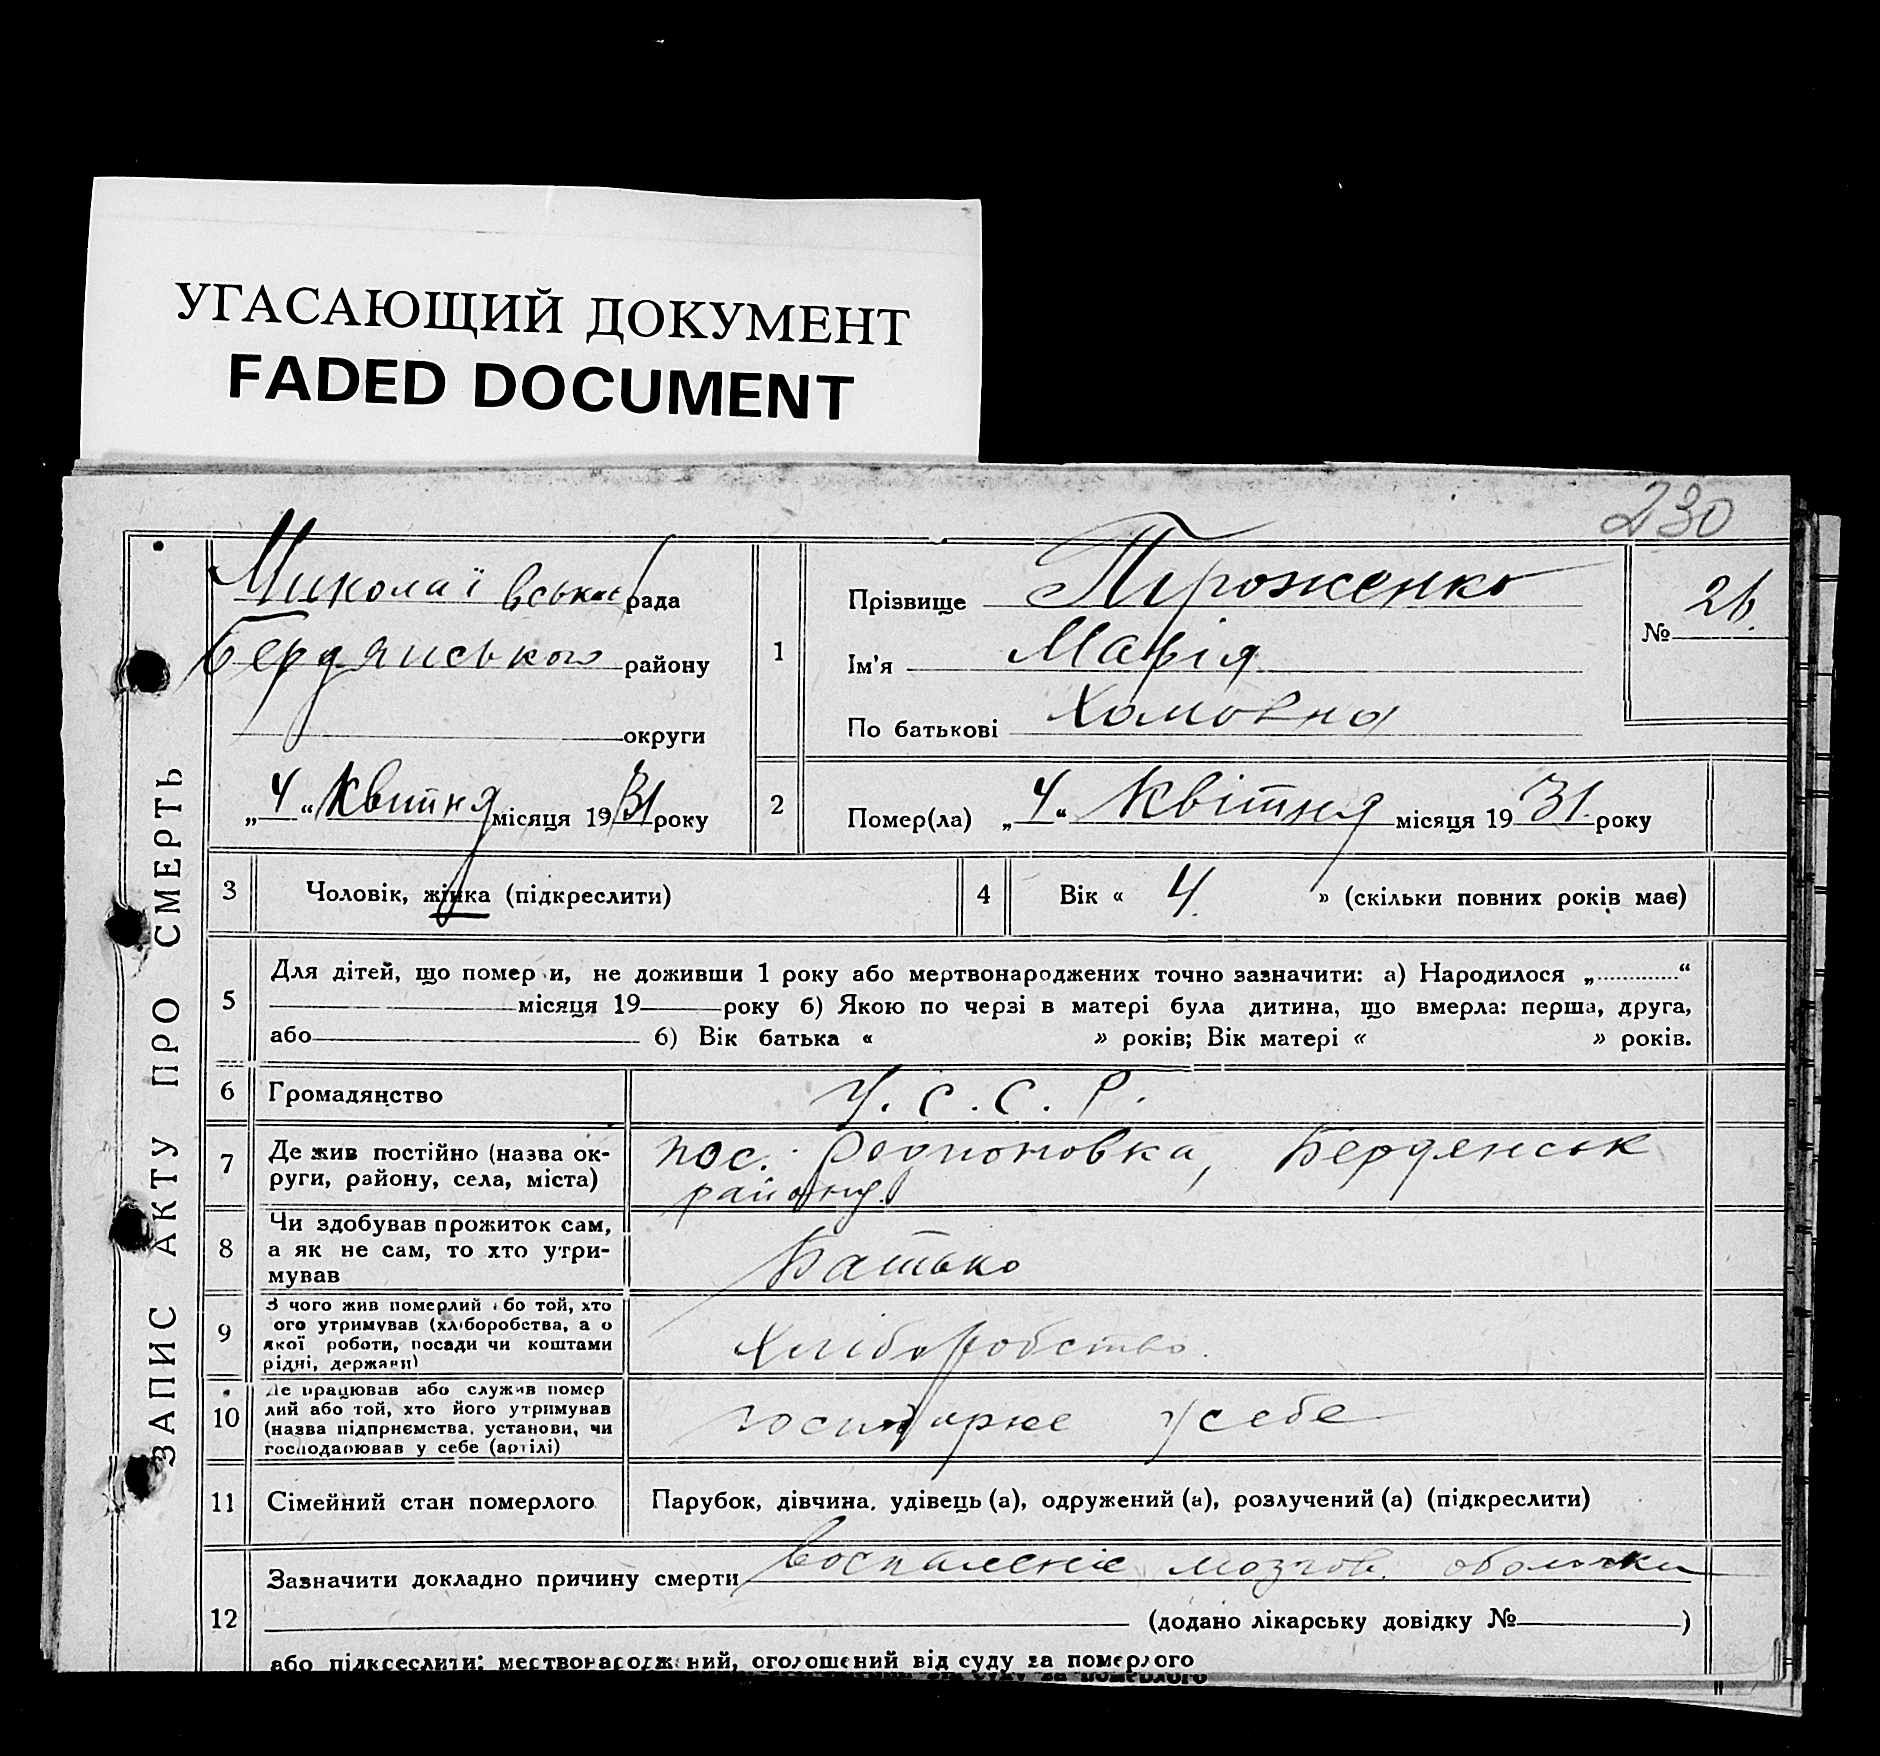 УГАСАЮЩИЙ ДОКУМЕНТ
FADED DOCUMENT
230
ЗАПИС АКТУ ПРО СМЕРТЬ
Миколаївська рада
Бердянського району
округи
„4“ Квитня місяця 1931 року
1
Прізвище Пироженко
Ім'я Марія
По батькові Хомовна
№ 26.
2
Помер(ла) „4“ Квітня місяця 1931. року
3 Чоловік, жінка (підкреслити)
4 Вік « 4 » (скільки повних років має)
5
Для дітей, що померли, не доживши 1 року або мертвонароджених точно зазначити: а) Народилося „ “
місяця 19 року б) Якою по черзі в матері була дитина, що вмерла: перша, друга,
або б) Вік батька « » років; Вік матері « » років.
6 Громадянство У.С.С.Р.
7 Де жив постійно (назва ок-
руги, району, села, міста)
пос. Бердянськ
району
8 Чи здобував прожиток сам,
а як не сам, то хто утри-
мував
Батько
9 З чого жив померлий або той, хто
його утримував (хліборобства, а о
якої роботи, посади чи коштами
рідні, держави)
Хліборобство.
10 Де працював або служив помер
лий або той, хто його утримував
(назва підприємства, установи, чи
господарював у себе (артілі)
у себе
11 Сімейний стан померлого Парубок, дівчина, удівець (а), одружений (а), розлучений (а) (підкреслити)
12
Зазначити докладно причину смерти воспаленіе мозгов. оболочки
(додано лікарську довідку № )
або підкреслити: мертвонароджений, оголошений від суду за померлого